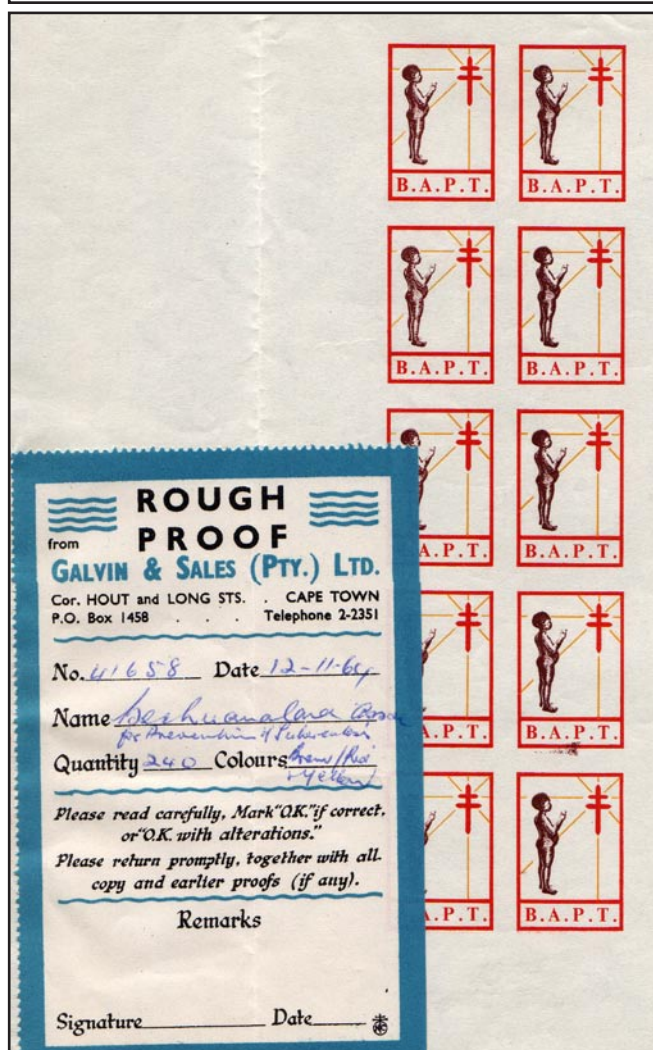 B.A.P.T. B.A.P.T.
B.A.P.T. B.A.P.T.
A.P.T. B.A.P.T.
A.P.T. B.A.P.T.
A.P.T. B.A.P.T.
ROUGH
from PROOF
GALVIN & SALES (PTY.) LTD.
Cor. HOUT and LONG STS. . CAPE TOWN
P.O. Box 1458 . . . Telephone 2-2351
No. 41658 Date 12-11-64
Name Bechuanaland Assn
for Prevention of Tuberculosis
Quantity 240 Colours Brown/Red
+ Yellow
Please read carefully, Mark "O.K." if correct,
or "O.K. with alterations."
Please return promptly, together with all
copy and earlier proofs (if any).
Remarks
Signature Date